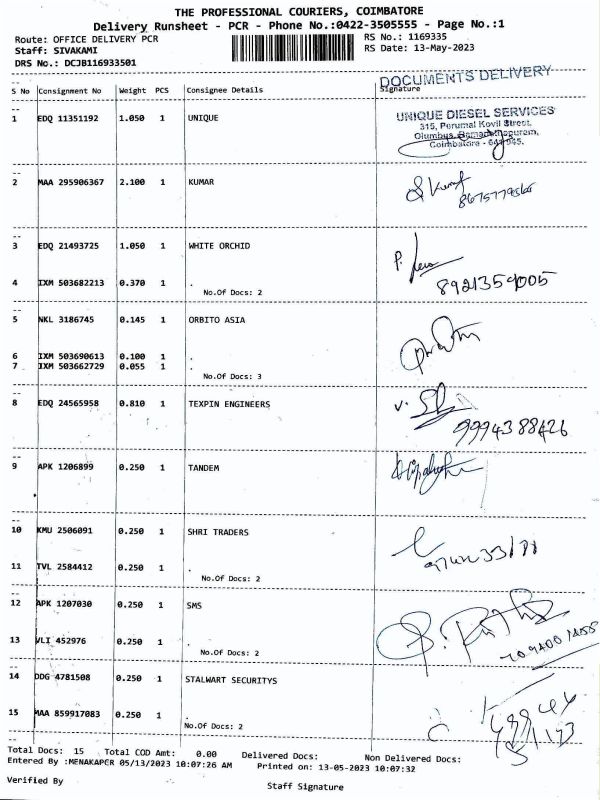 THE PROFESSIONAL COURIERS, COIMBATORE
Delivery Runsheet - PCR - Phone No.:0422-3505555 - Page No.:1
Route: OFFICE DELIVERY PCR RS No.: 1169335
Staff: SIVAKAMI RS Date: 13-May-2023
DRS No.: DCJB116933501
DOCUMENTS DELIVERY
S No Consignment No Weight PCS Consignee Details Signature
1 EDQ 11351192 1.050 1 UNIQUE
UNIQUE DIESEL SERVICES
315, Perumal Kovil Street,
Olumbus, Ramanathapuram,
Coimbatore - 641 045.
2 MAA 295906367 2.100 1 KUMAR
3 EDQ 21493725 1.050 1 WHITE ORCHID
4 IXM 503682213 0.370 1 .
No.Of Docs: 2
8921359005
5 NKL 3186745 0.145 1 ORBITO ASIA
6 IXM 503690613 0.100 1 .
7 IXM 503662729 0.055 1 .
No.Of Docs: 3
8 EDQ 24565958 0.810 1 TEXPIN ENGINEERS
9994388426
9 APK 1206899 0.250 1 TANDEM
10 KMU 2506091 0.250 1 SHRI TRADERS
11 TVL 2584412 0.250 1 .
No.Of Docs: 2
12 APK 1207030 0.250 1 SMS
13 VLI 452976 0.250 1 .
No.Of Docs: 2
14 DDG 4781508 0.250 1 STALWART SECURITYS
15 MAA 859917083 0.250 1 .
No.Of Docs: 2
Total Docs: 15 Total COD Amt: 0.00 Delivered Docs: Non Delivered Docs:
Entered By :MENAKAPER 05/13/2023 10:07:26 AM Printed on: 13-05-2023 10:07:32
Verified By Staff Signature